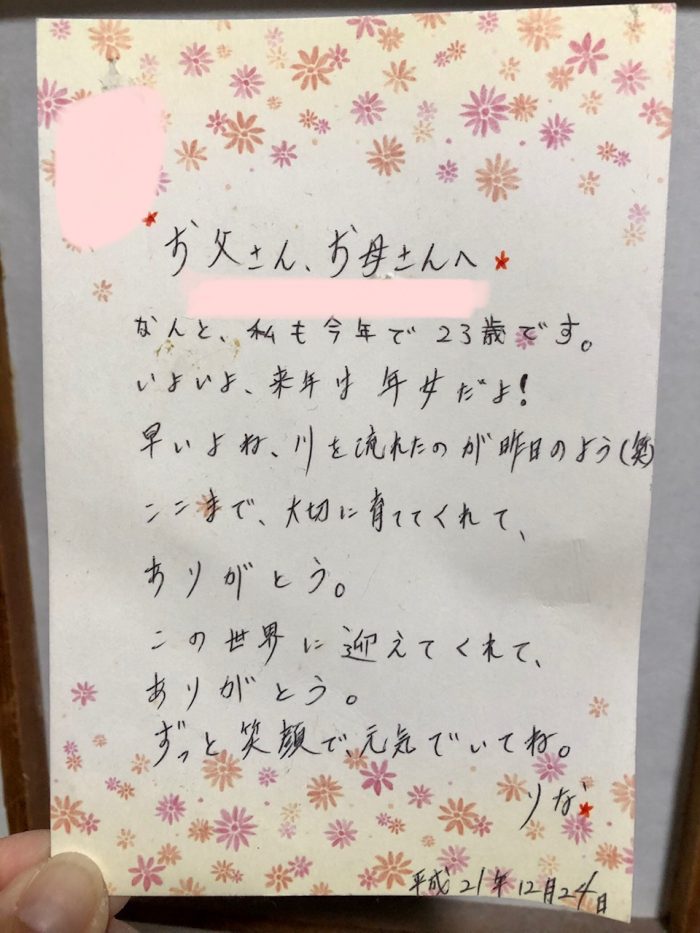 お父さん、お母さんへ
なんと、私も今年で23歳です。
いよいよ、来年は年女だよ!
早いよね、川を流れたのが昨日のよう(笑)
ここまで、大切に育ててくれて、
ありがとう。
この世界に迎えてくれて、
ありがとう。
ずっと笑顔で、元気でいてね。
りな
平成21年12月24日